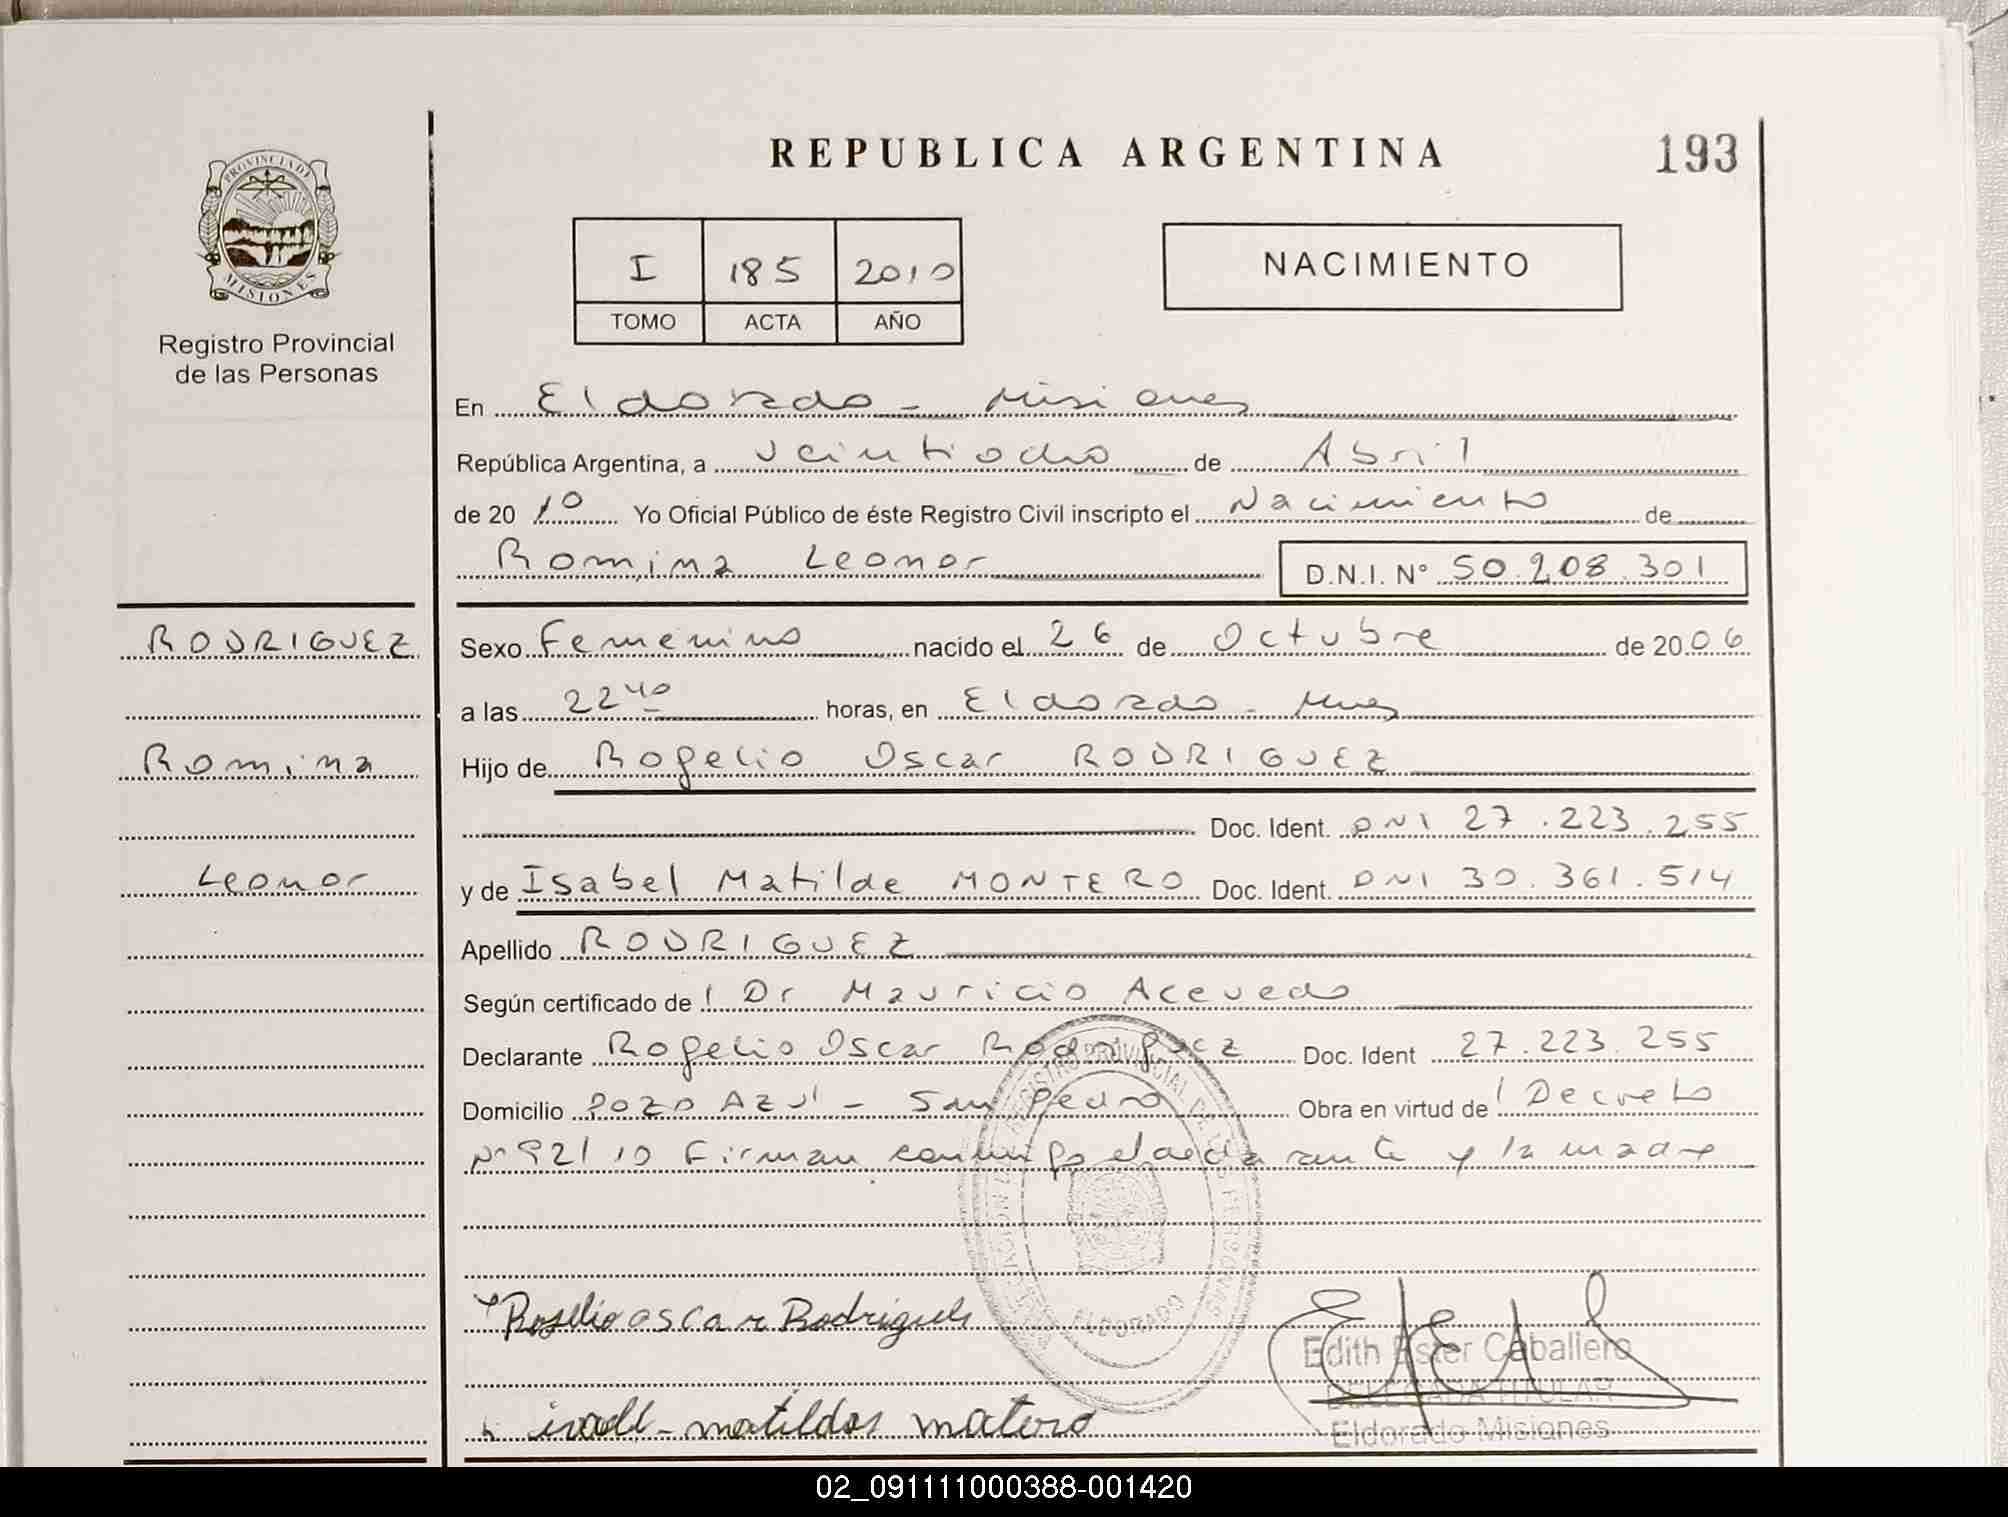 REPUBLICA ARGENTINA
193
PROVINCIA DE
MISIONES
Registro Provincial
de las Personas
I 185 2010
TOMO ACTA AÑO
NACIMIENTO
En Eldorado - Misiones
República Argentina, a veintiocho de Abril
de 20 10 Yo Oficial Público de éste Registro Civil inscripto el Nacimiento de
Romina Leonor D.N.I. N° 50.208.301
RODRIGUEZ
Romina
Leonor
Sexo Femenino nacido el 26 de Octubre de 2006
a las 22 40 horas, en Eldorado - Mnes
Hijo de Rogelio Oscar RODRIGUEZ
Doc. Ident. DNI 27.223.255
y de Isabel Matilde MONTERO Doc. Ident. DNI 30.361.514
Apellido RODRIGUEZ
Según certificado de l Dr Mauricio Acevedo
Declarante Rogelio Oscar Rodriguez Doc. Ident 27.223.255
Domicilio Pozo Azul - San Pedro Obra en virtud de l Decreto
N° 921/10 Firman conmigo el declarante y la madre
ELDORADO
Roselio oscar Rodrigues
matildas matero
Edith Ester Caballero
DELEGADA TITULAR
Eldorado Misiones
02_091111000388-001420